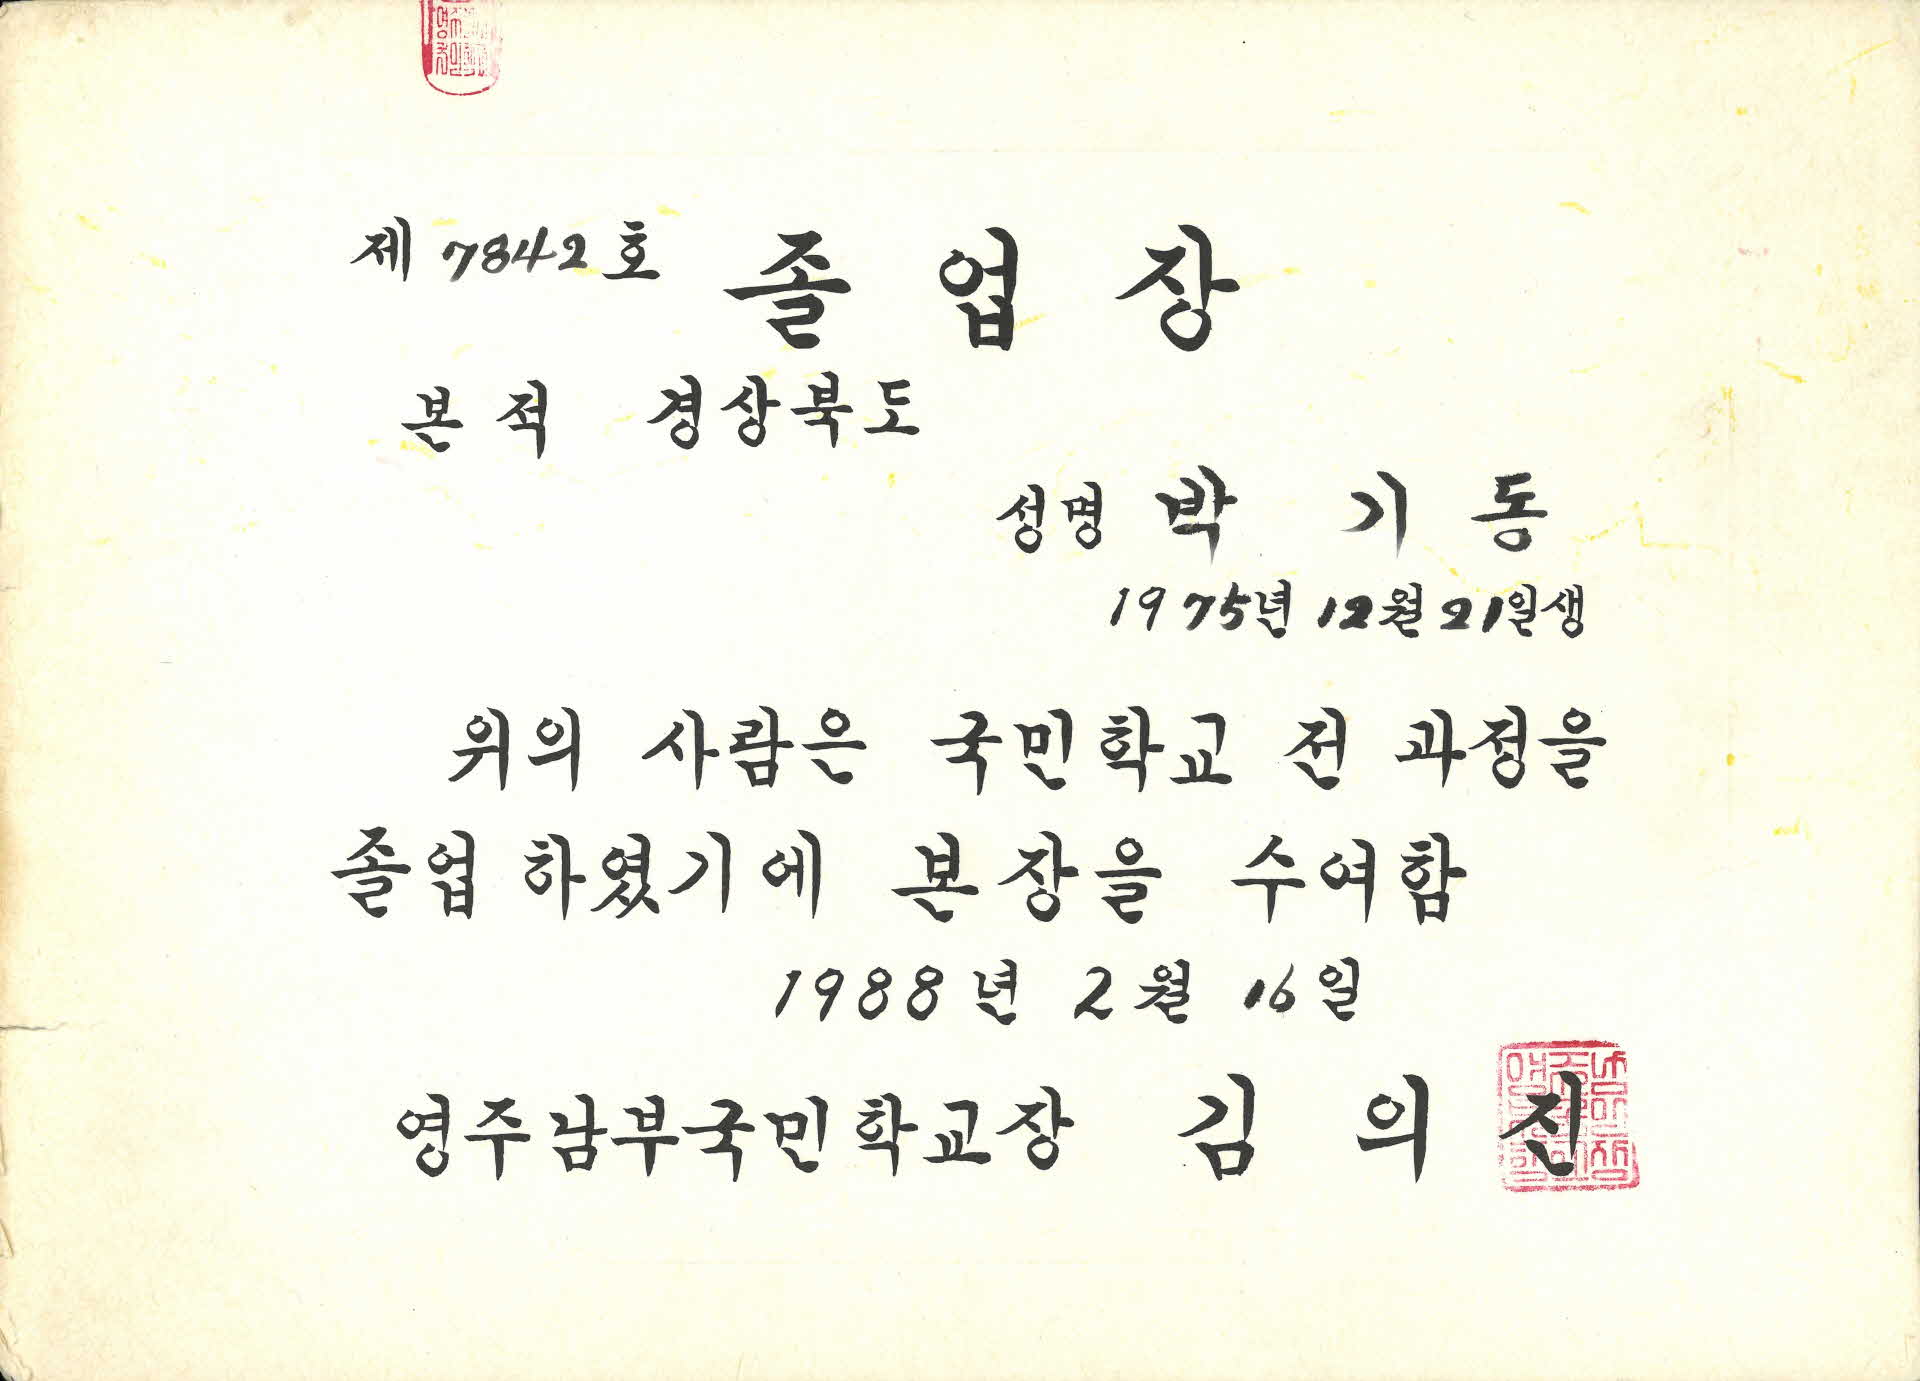 제 7842 호 졸 업 장
본 적 경상북도
성명 박 기 동
1975년 12월 21일생
위의 사람은 국민학교 전 과정을
졸업 하였기에 본 장을 수여함
1988년 2월 16일
영주남부국민학교장 김 의 진